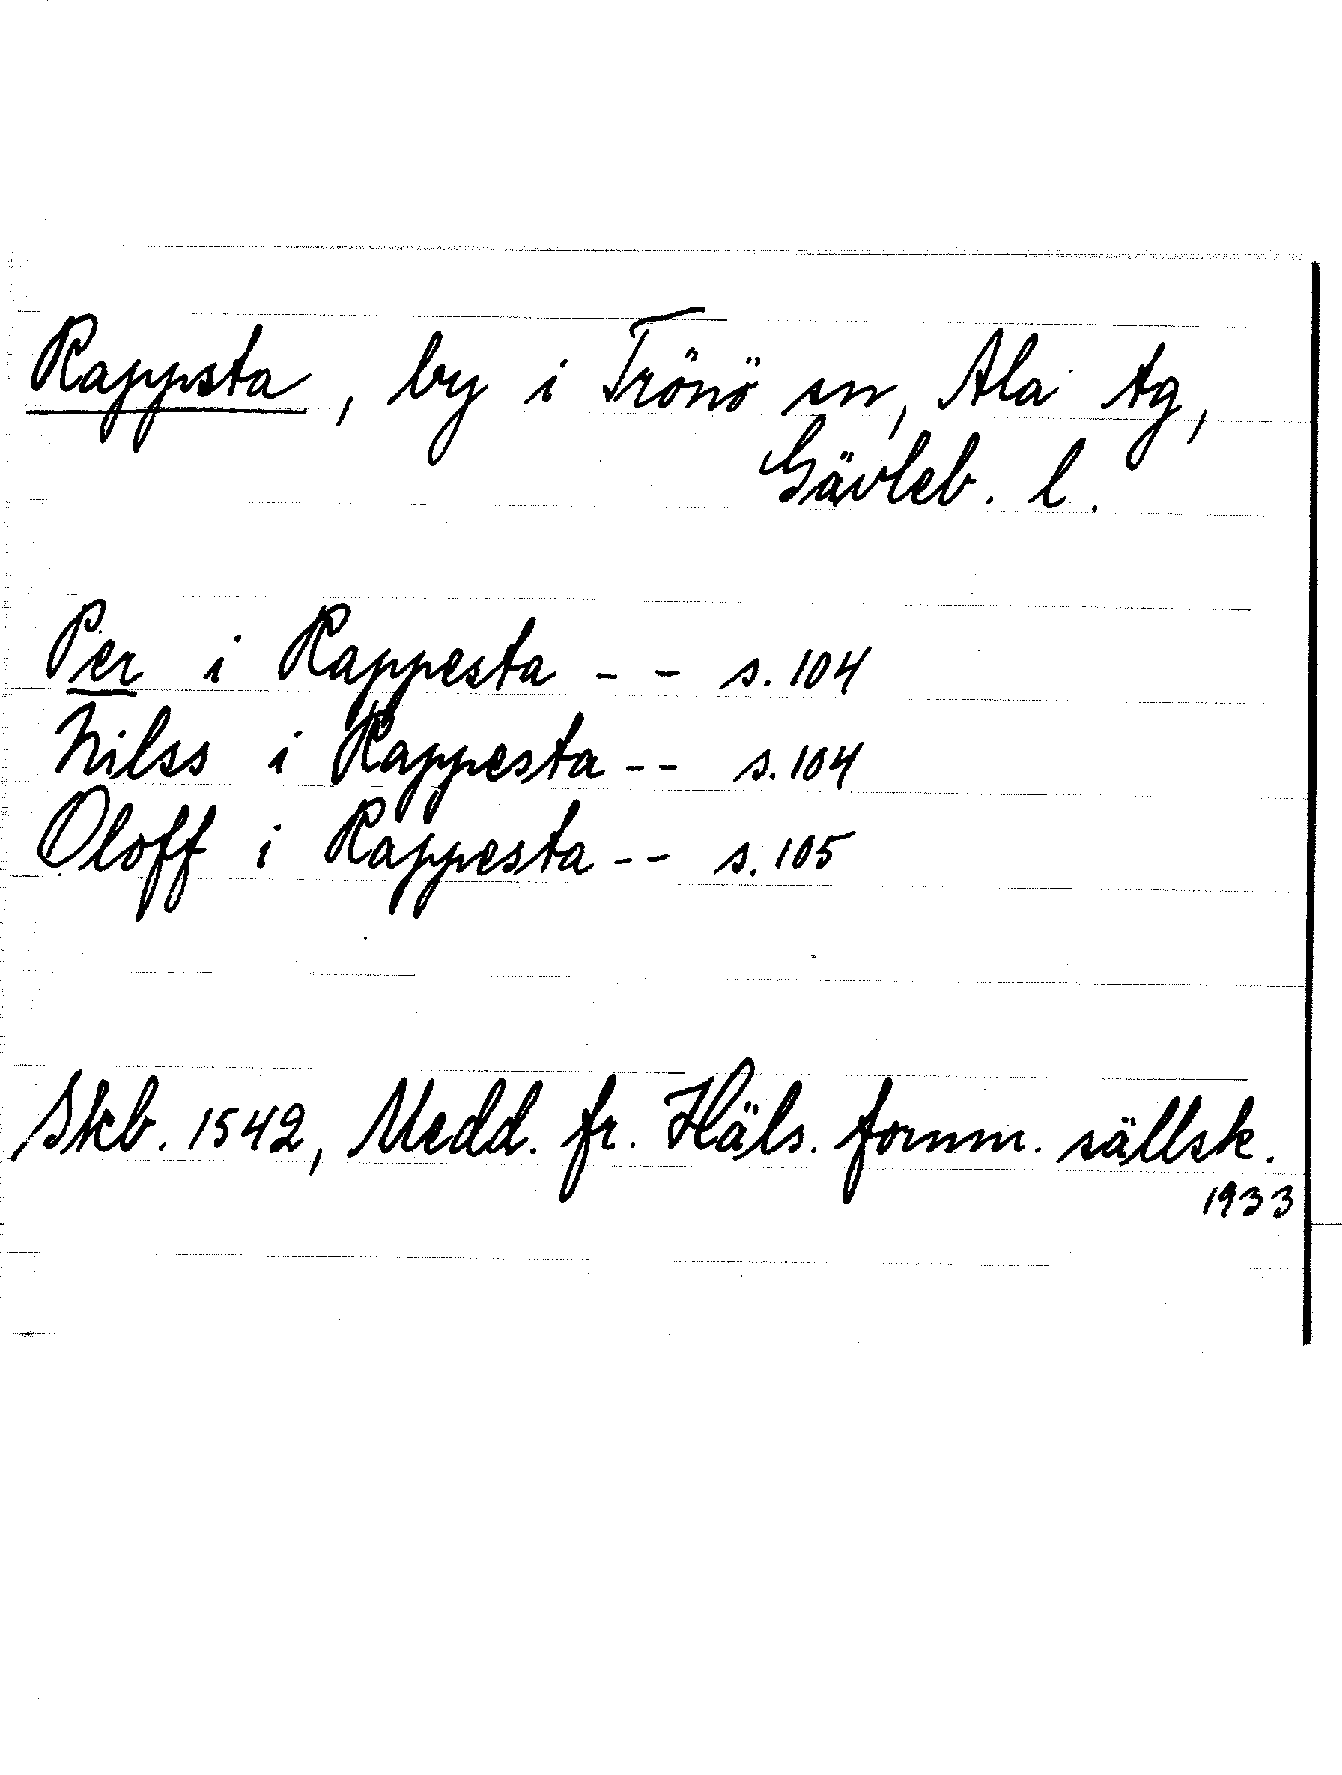 Rappsta, by i Trönö sn, Ala tg,
Gävleb. l.
Per i Rappesta - - s. 104
Nilss i Rappesta - - s. 104
Oloff i Rappesta - - s. 105
Skb. 1542, Medd. fr. Häls. fornm. sällsk.
1933